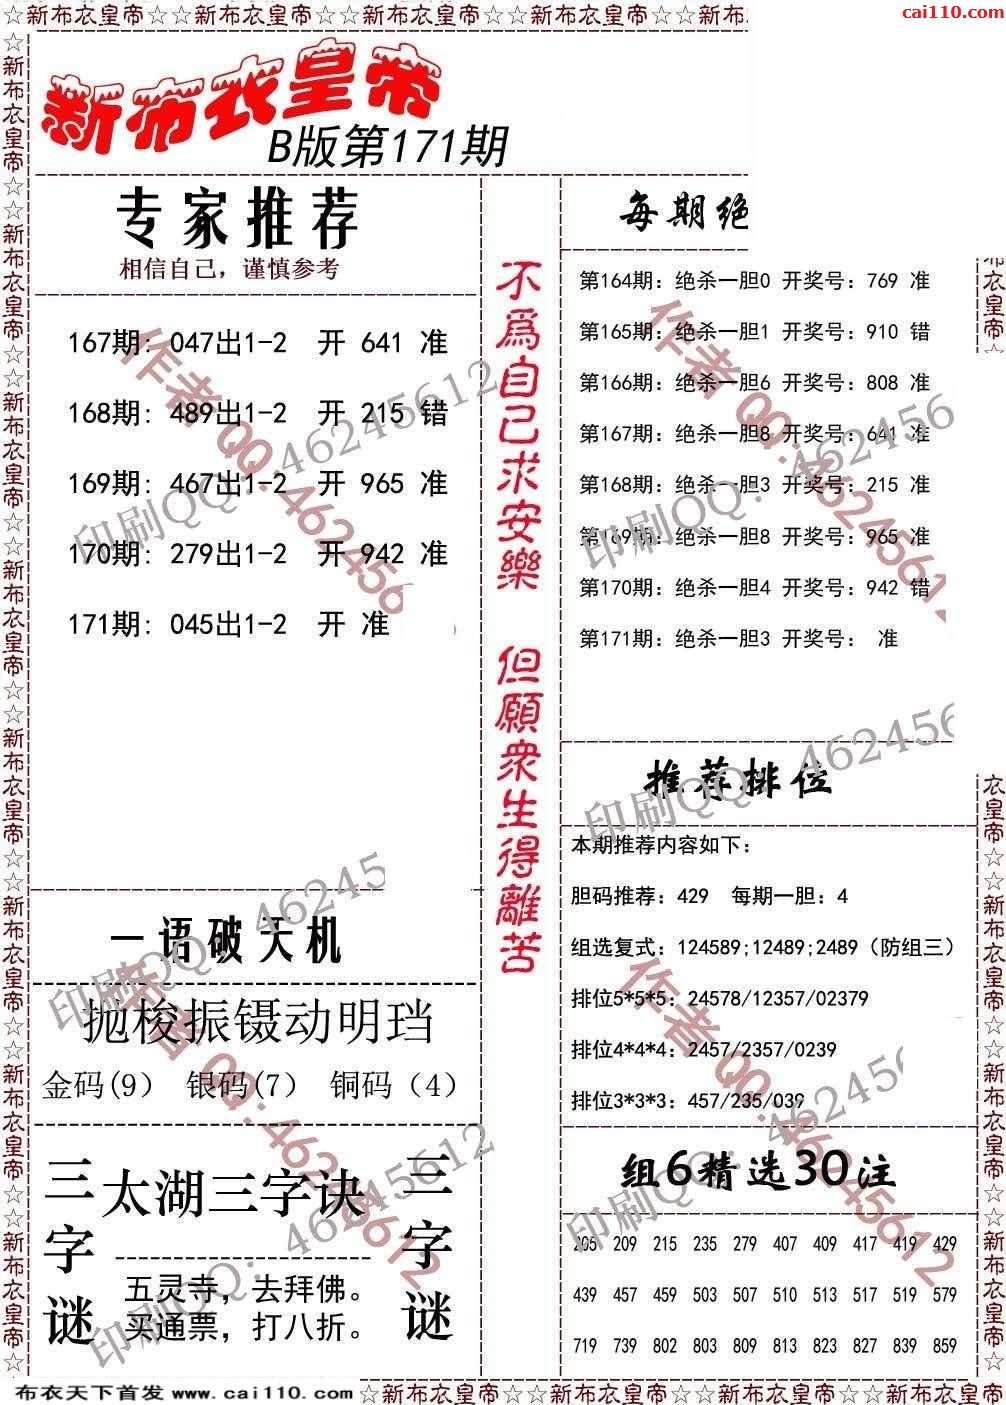 ☆新布衣皇帝☆☆新布衣皇帝☆☆新布衣皇帝☆☆新布衣皇帝☆☆新布
cai110.com
新布衣皇帝
B版第171期
专家推荐
相信自己，谨慎参考
167期: 047出1-2 开 641 准
168期: 489出1-2 开 215 错
169期: 467出1-2 开 965 准
170期: 279出1-2 开 942 准
171期: 045出1-2 开 准
不爲自己求安樂 但願衆生得離苦
每期绝
第164期: 绝杀一胆0 开奖号: 769 准
第165期: 绝杀一胆1 开奖号: 910 错
第166期: 绝杀一胆6 开奖号: 808 准
第167期: 绝杀一胆8 开奖号: 641 准
第168期: 绝杀一胆3 开奖号: 215 准
第169期: 绝杀一胆8 开奖号: 965 准
第170期: 绝杀一胆4 开奖号: 942 错
第171期: 绝杀一胆3 开奖号: 准
推荐排位
本期推荐内容如下:
胆码推荐: 429 每期一胆: 4
组选复式: 124589;12489;2489（防组三）
排位5*5*5: 24578/12357/02379
排位4*4*4: 2457/2357/0239
排位3*3*3: 457/235/039
一语破天机
抛梭振镊动明珰
金码(9） 银码(7） 铜码（4）
三字谜
太湖三字诀
五灵寺，去拜佛。
买通票，打八折。
三字谜
组6精选30注
205 209 215 235 279 407 409 417 419 429
439 457 459 503 507 510 513 517 519 579
719 739 802 803 809 813 823 827 839 859
布衣天下首发 www.cai110.com
☆新布衣皇帝☆☆新布衣皇帝☆☆新布衣皇帝☆☆新布衣皇帝☆
作者QQ:462456
印刷QQ: 46245612
作者QQ:46245612
印刷QQ: 462456
印刷QQ: 462456
印刷QQ: 46245
作者QQ:46245612
印刷QQ: 46245612
作者QQ:46245612
印刷QQ: 462456